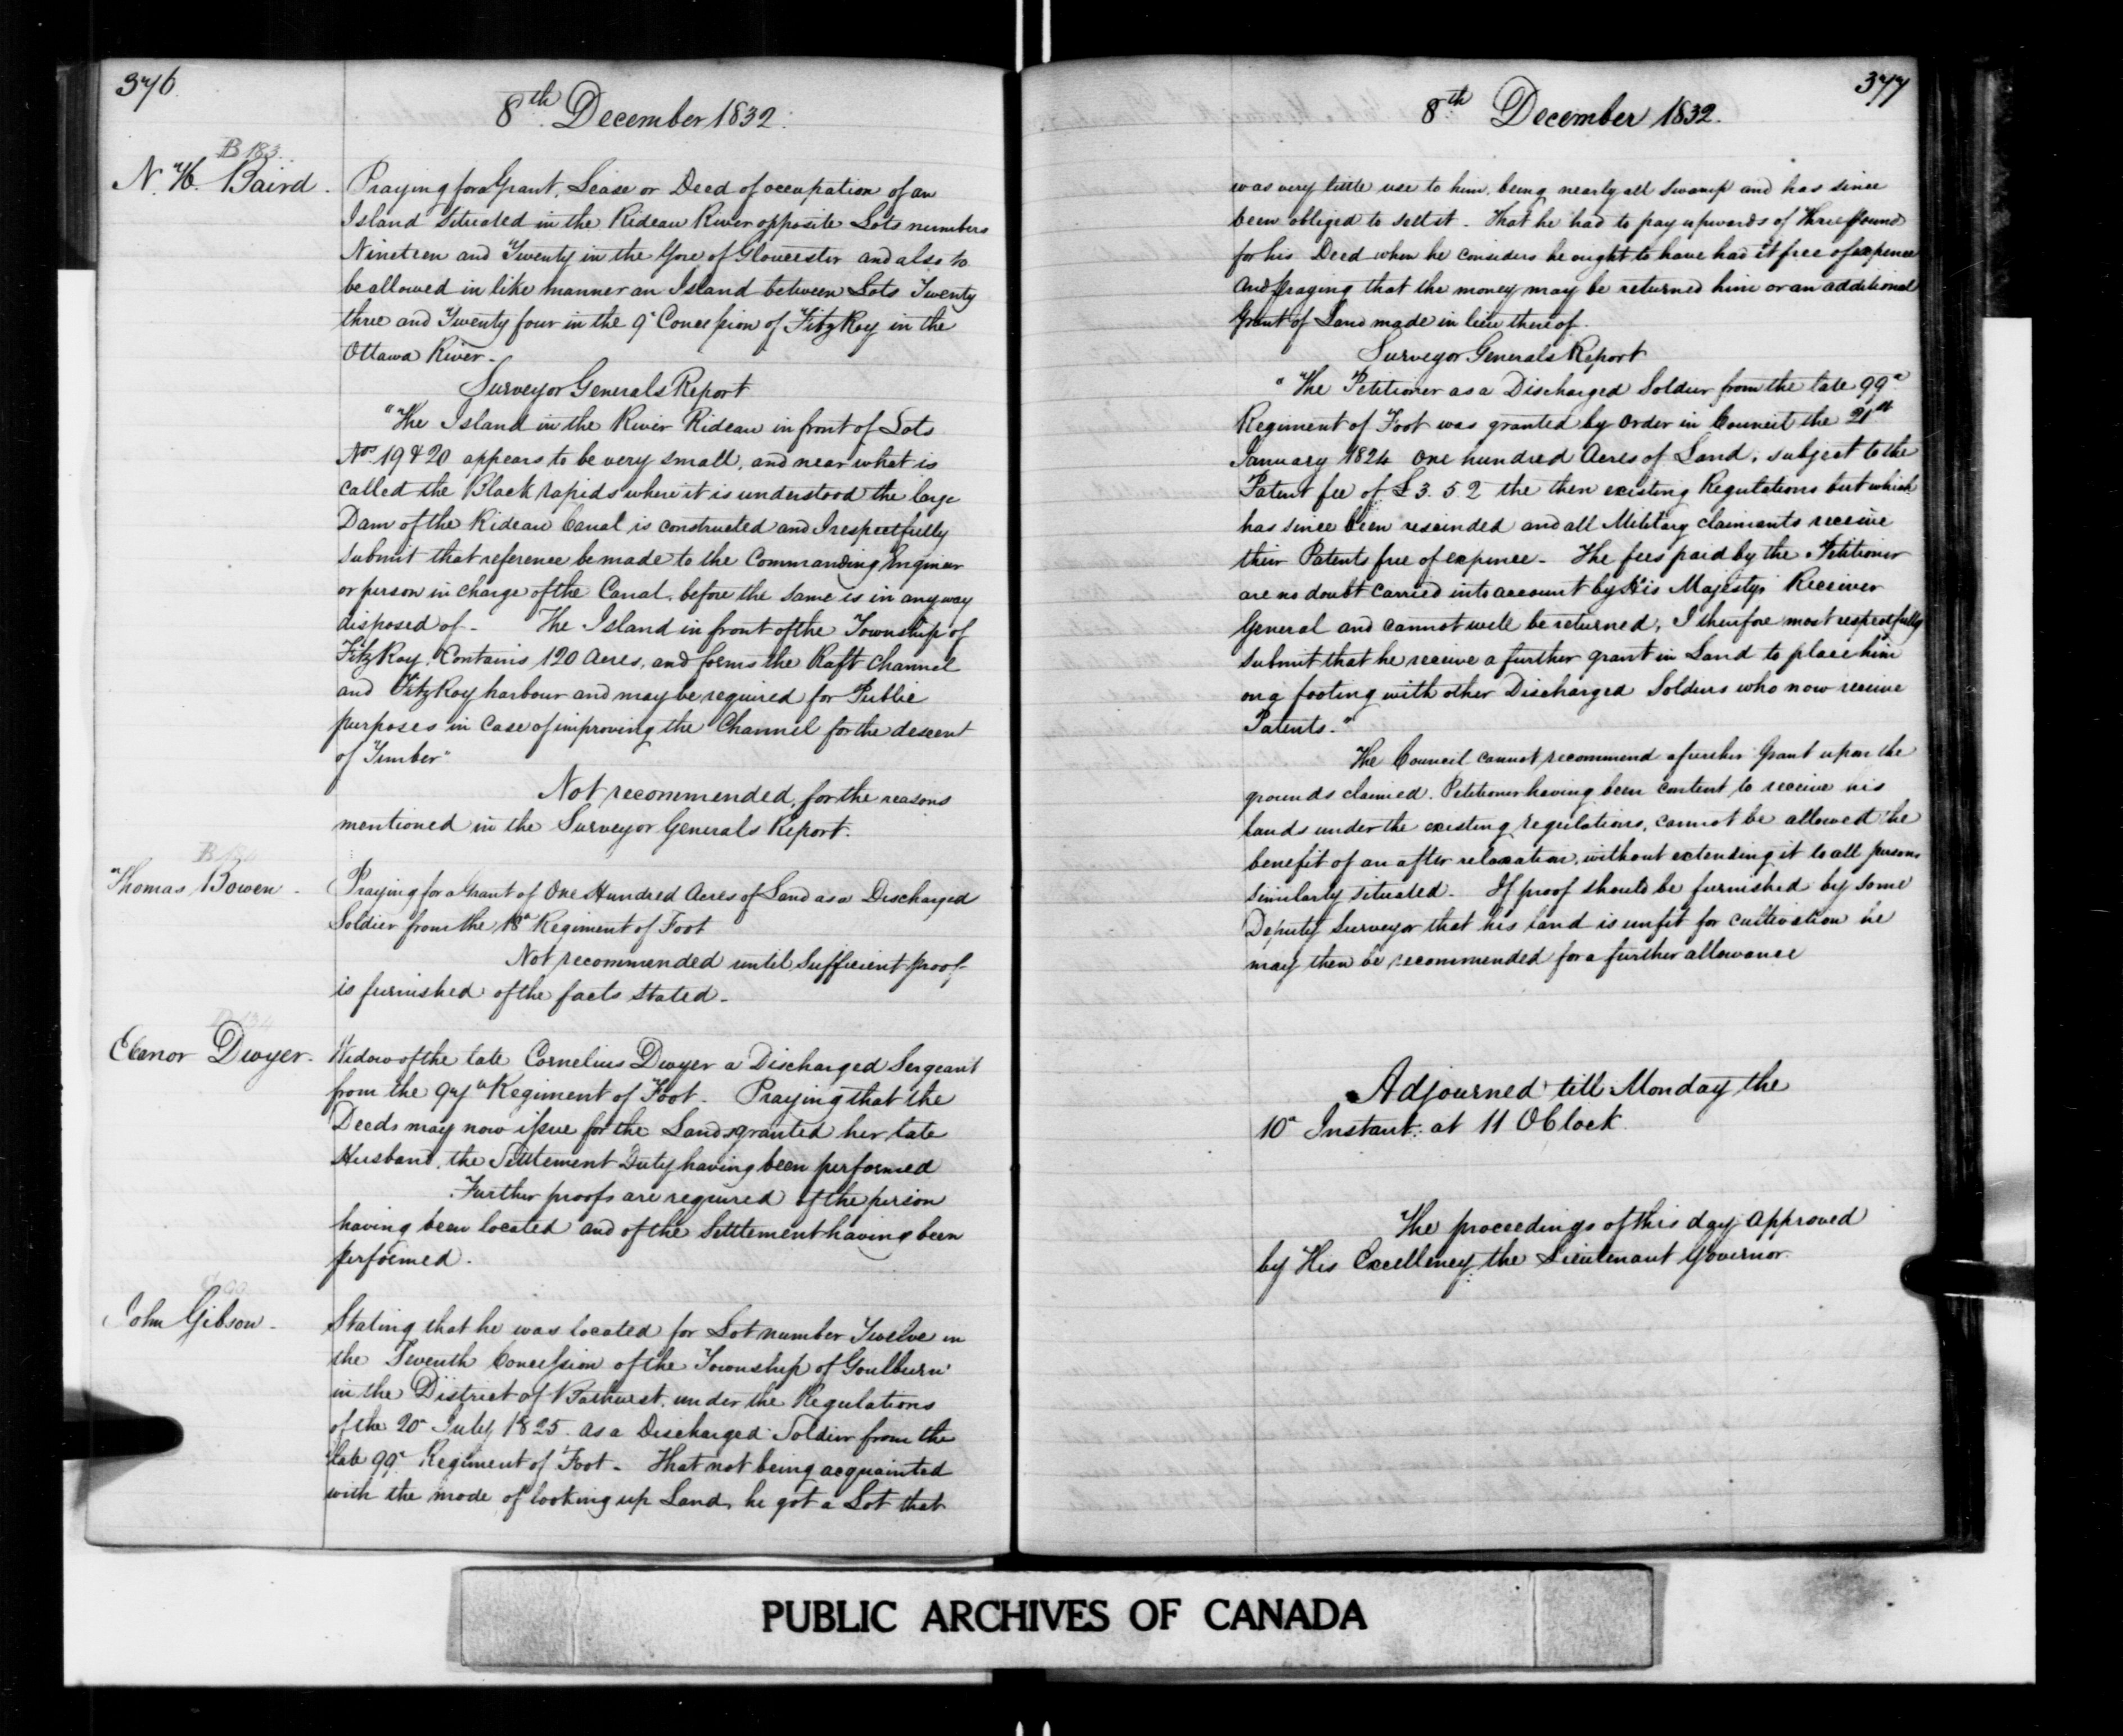 376
8th December 1832.
B 183.
N. H. Baird.
Praying for a Grant, Lease or Deed of occupation of an
Island situated in the Rideau River opposite Lots numbers
Nineteen and Twenty in the Gore of Gloucester and also to
be allowed in like manner an Island between Lots Twenty
three and Twenty four in the 9th Concession of FitzRoy in the
Ottawa River.
Surveyor Generals Report
"The Island in the River Rideau in front of Lots
Nos 19 & 20 appears to be very small, and near what is
called the Black rapids where it is understood the large
Dam of the Rideau Canal is constructed and I respectfully
submit that reference be made to the Commanding Engineer
or person in charge of the Canal, before the same is in any way
disposed of - The Island in front of the Township of
FitzRoy, Contains 120 Acres, and forms the Raft Channel
and FitzRoy harbour and may be required for Public
purposes in Case of improving the Channel for the descent
of Timber"
Not recommended, for the reasons
mentioned in the Surveyor Generals Report.
Thomas Bowen -
Praying for a Grant of One Hundred Acres of Land as a Discharged
Soldier from the Regiment of Foot
Not recommended until sufficient proof
is furnished of the facts stated -
Eleanor Dwyer -
Widow of the late Cornelius Dwyer a Discharged Sergeant
from the 97th Regiment of Foot - Praying that the
Deeds may now issue for the Lands granted her late
Husband, the Settlement Duty having been performed
Further proofs are required of the person
having been located and of the Settlement having been
performed.
John Gibson -
Stating that he was located for Lot number Twelve in
the Concession of the Township of Goulburn
in the District of Bathurst, under the Regulations
of the 20th July 1825. as a Discharged Soldier from the
late 99th Regiment of Foot - That not being acquainted
with the mode of looking up Land, he got a Lot that
377
8th December 1832.
was very little use to him, being nearly all swamp and has since
been obliged to sell it - That he had to pay upwards of Three pound
for his Deed when he considers he ought to have had it free of expence
and praying that the money may be returned him or an additional
Grant of Land made in lieu thereof.
Surveyor Generals Report
"The Petitioner as a Discharged Soldier from the late 99th
Regiment of Foot was granted by Order in Council the 21st
January 1824 One hundred Acres of Land, subject to the
Patent fee of £3. 5. 2 the then existing Regulations but which
has since been rescinded and all Military claimants receive
their Patents free of expence - The fees paid by the Petitioner
are no doubt carried into account by His Majestys Receiver
General and cannot well be returned, I therefore most respectfully
submit that he receive a further grant in Land to place him
on a footing with other Discharged Soldiers who now receive
Patents."
The Council cannot recommend a further Grant upon the
grounds claimed. Petitioner having been content to receive his
lands under the existing regulations, cannot be allowed the
benefit of an after relaxation, without extending it to all persons
similarly situated - If proof should be furnished by some
Deputy Surveyor that his land is unfit for cultivation he
may then be recommended for a further allowance
Adjourned till Monday the
10th Instant: at 11 OClock
The proceedings of this day Approved
by His Excellency the Lieutenant Governor.
PUBLIC ARCHIVES OF CANADA